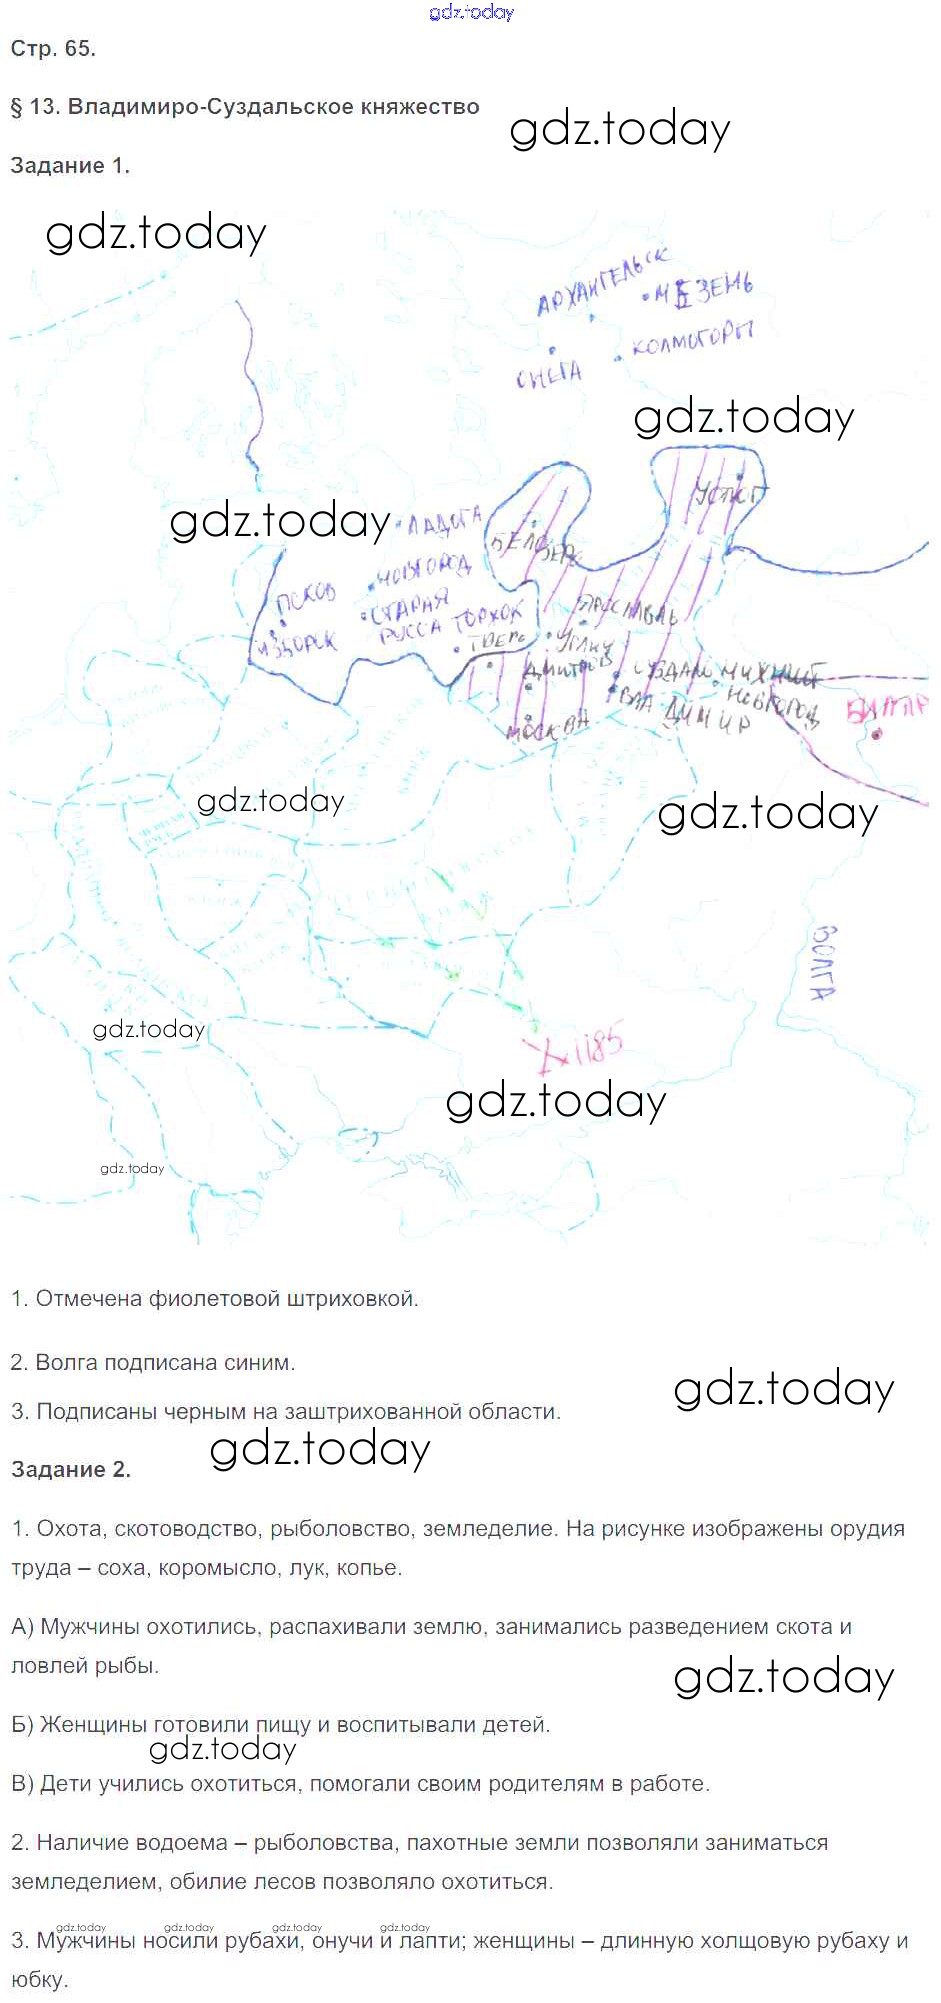 gdz.today
Стр. 65.
§ 13. Владимиро-Суздальское княжество
gdz.today
Задание 1.
gdz.today
АРХАНГЕЛЬСК
МЕЗЕНЬ
КОЛМОГОРЫ
ОНЕГА
gdz.today
УСТЮГ
gdz.today
ЛАДОГА
БЕЛООЗЕРО
НОВГОРОД
ПСКОВ
СТАРАЯ
РУССА ТОРЖОК
ЯРОСЛАВЛЬ
ИЗБОРСК
ТВЕРЬ
УГЛИЧ
ДМИТРОВ
СУЗДАЛЬ НИЖНИЙ
НОВГОРОД
ВЛАДИМИР
МОСКВА
БИЛЯР
gdz.today
gdz.today
ВОЛГА
gdz.today
1185
gdz.today
gdz.today
1. Отмечена фиолетовой штриховкой.
2. Волга подписана синим.
gdz.today
3. Подписаны черным на заштрихованной области.
gdz.today
Задание 2.
1. Охота, скотоводство, рыболовство, земледелие. На рисунке изображены орудия
труда – соха, коромысло, лук, копье.
А) Мужчины охотились, распахивали землю, занимались разведением скота и
ловлей рыбы.
gdz.today
Б) Женщины готовили пищу и воспитывали детей.
gdz.today
В) Дети учились охотиться, помогали своим родителям в работе.
2. Наличие водоема – рыболовства, пахотные земли позволяли заниматься
земледелием, обилие лесов позволяло охотиться.
gdz.today gdz.today gdz.today gdz.today
3. Мужчины носили рубахи, онучи и лапти; женщины – длинную холщовую рубаху и
юбку.